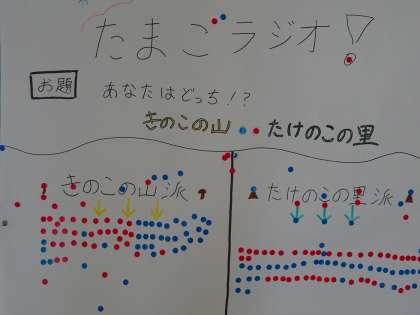 たまごラジオ!
お題
あなたはどっち!?
きのこの山 たけのこの里
きのこの山派 たけのこの里派